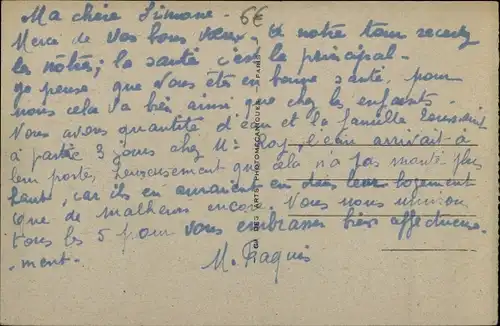 Ma chère Simone - 6€
Merci de vos bons vœux, à notre tour recevez
les nôtres; la santé c'est le principal -
je pense que vous êtes en bonne santé, pour
nous cela va bien ainsi que chez les enfants -
Nous avons quantité d'eau et la famille
à partir 3 jours chez Mr l'eau arrivait à
leur porte, heureusement que cela n'a pas monté plus
haut, car ils en auraient eu dans leur logement
que de malheurs encore. Nous nous unissons
tous les 5 pour vous embrasser bien affectueuse-
-ment -
M. Paquis
DES ARTS PHOTOMÉCANIQUES - PARIS